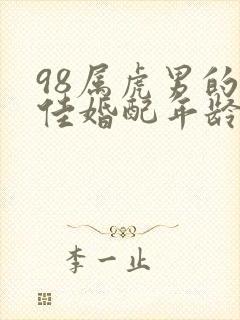 98属虎男的
佳婚配年龄
李一止